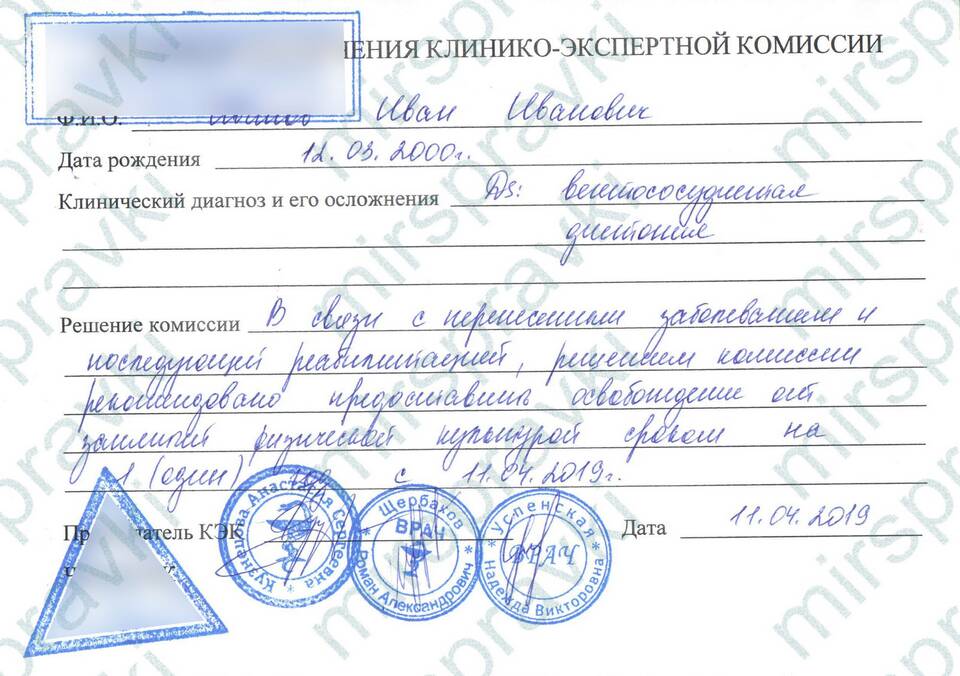 ЕНИЯ КЛИНИКО-ЭКСПЕРТНОЙ КОМИССИИ
Ф.И.О. Иван Иванович
Дата рождения 12.03.2000г.
Клинический диагноз и его осложнения Ds: вегтососудистая
дистония
Решение комиссии В связи с перенесенным заболеванием и
последующей реабилитацией, решением комиссии
рекомендовано предоставить освобождение от
занятий физической культурой сроком на
1 (один) год с 11.04.2019г.
Пр атель КЭК Дата 11.04.2019
Кузнецова Анастасия Сергеевна
Щербаков Роман Александрович
ВРАЧ
Успенская Надежда Викторовна
ВРАЧ
mirspravki